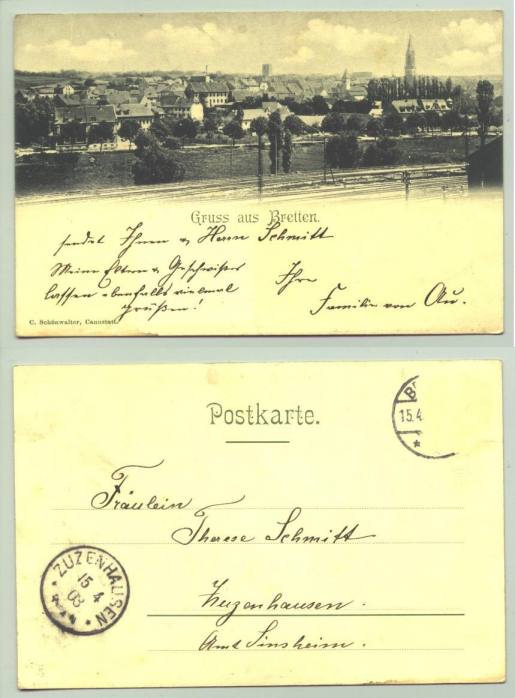 Gruss aus Bretten.
sendet Ihnen u Herrn Schmitt
Meine Eltern u Geschwister
lassen ebenfalls vielmal
grüßen!
Ihre
Familie von Au.
C. Schönwalter, Cannstatt.
Postkarte.
15.4
Fräulein
Therese Schmitt
Zuzenhausen.
Amt Sinsheim.
ZUZENHAUSEN
15 4
03